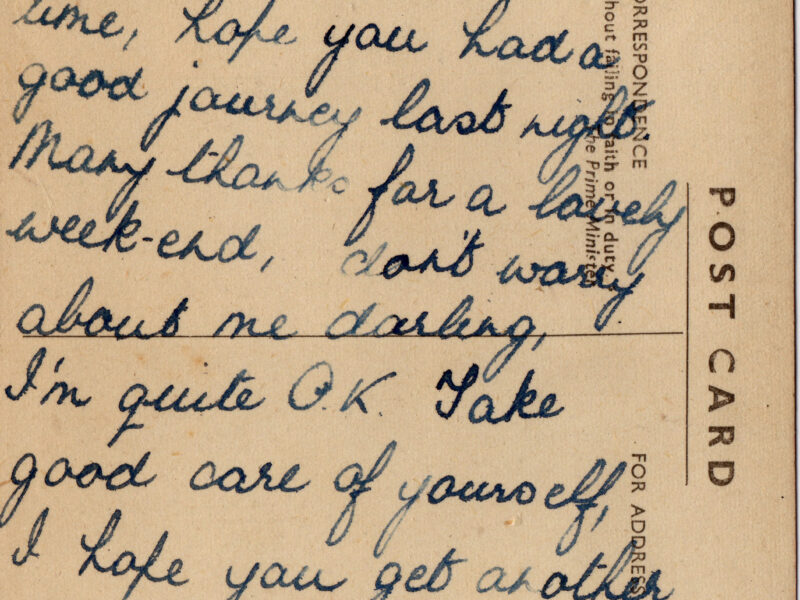 time, hope you had a
good journey last night.
Many thanks for a lovely
week-end, don't worry
about me darling,
I'm quite O.K. Take
good care of yourself,
I hope you get another
POST CARD
CORRESPONDENCE
without failing in faith or in duty
The Prime Minister
FOR ADDRESS